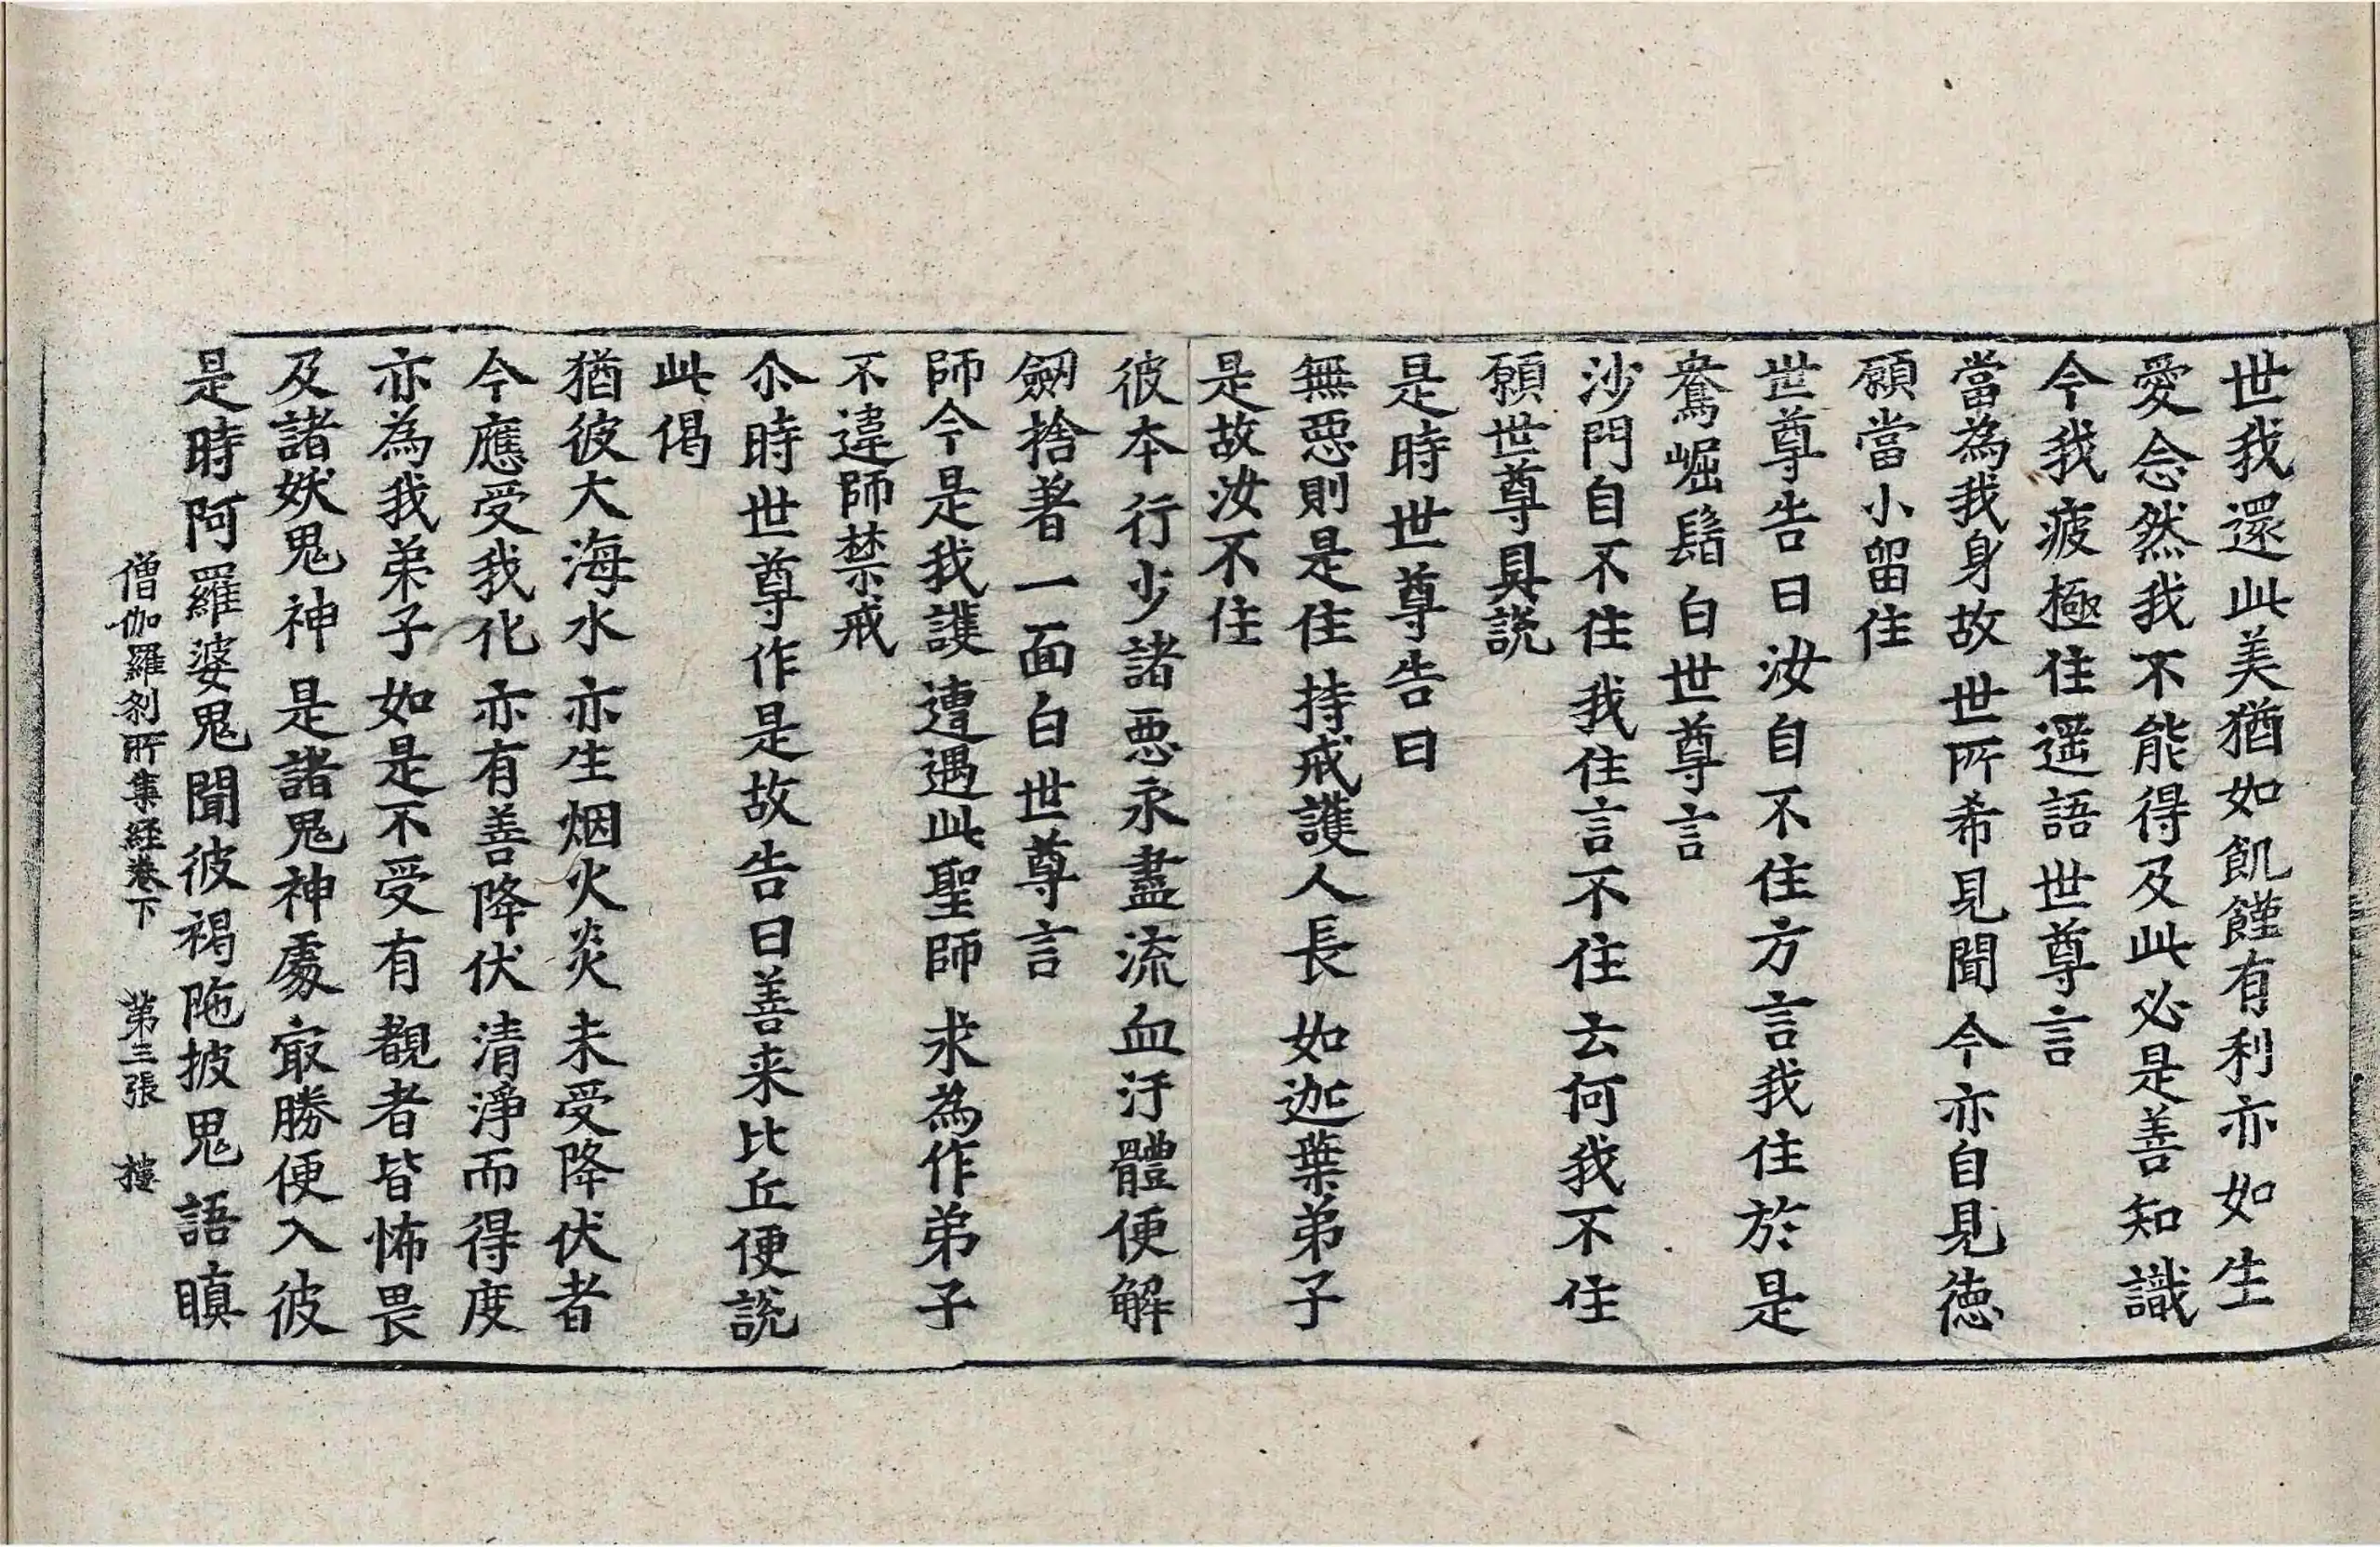 世我還此美猶如飢饉有利亦如生
愛念然我不能得及此必是善知識
今我疲極住遥語世尊言
當為我身故世所希見聞今亦自見德
願當小留住
世尊告曰汝自不住方言我住於是
鴦崛髻白世尊言
沙門自不住我住言不住云何我不住
願世尊具說
是時世尊告曰
無惡則是住持戒護人長如迦葉弟子
是故汝不住
彼本行少諸惡永盡流血汙體便解
劒捨著一面白世尊言
師今是我護遭遇此聖師求為作弟子
不違師禁戒
尒時世尊作是故告曰善来比丘便說
此偈
猶彼大海水亦生烟火炎未受降伏者
今應受我化亦有善降伏清淨而得度
亦為我弟子如是不受有覩者皆怖畏
及諸妖鬼神是諸鬼神處㝡勝便入彼
是時阿羅婆鬼聞彼褐陁披鬼語瞋
僧伽羅刹所集経卷下　第三張　樓